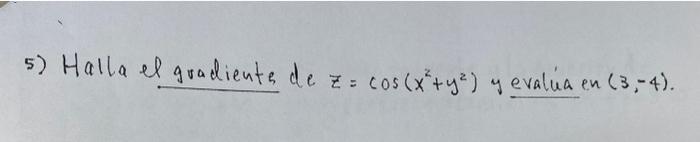 5) Halla el gradiente de z = cos(x²+y²) y evalúa en (3,-4).